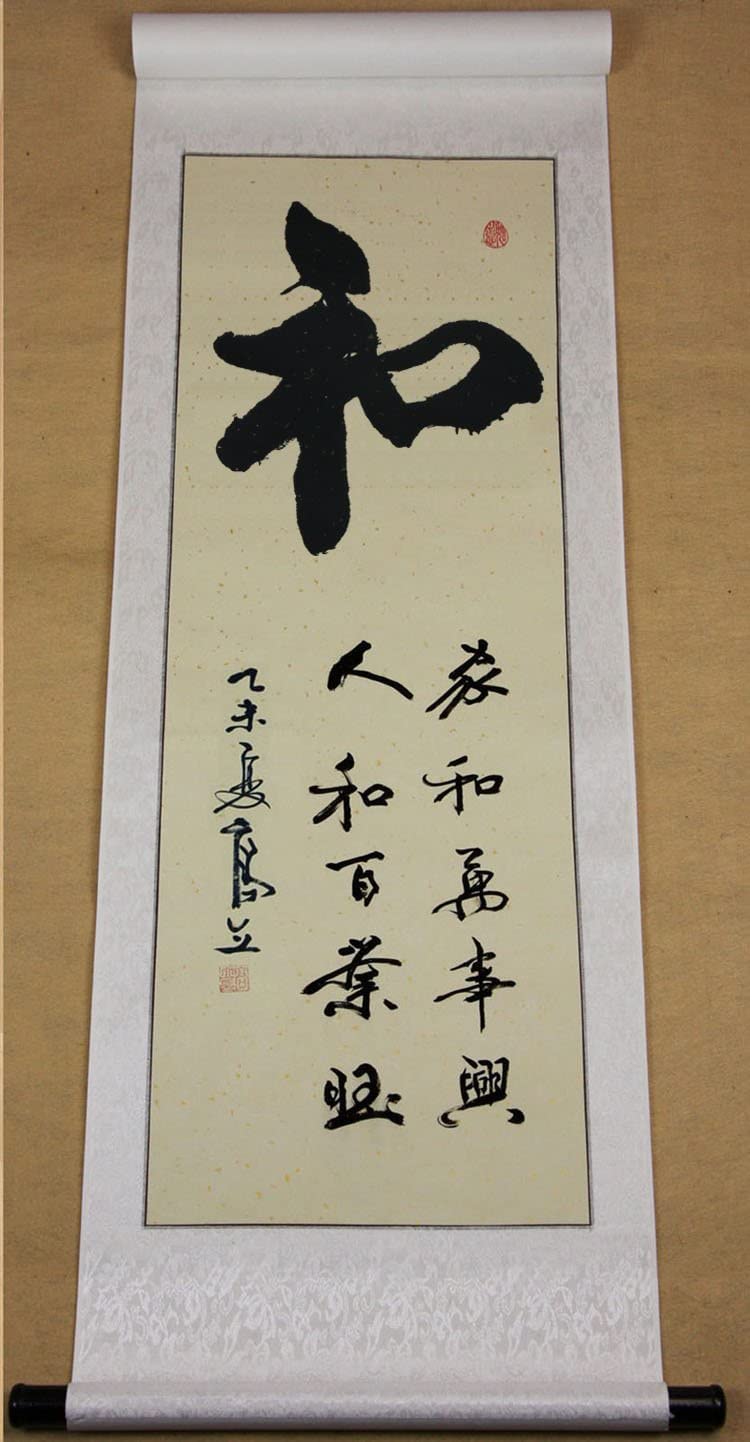 和
家和萬事興
人和百業旺
乙未夏高立